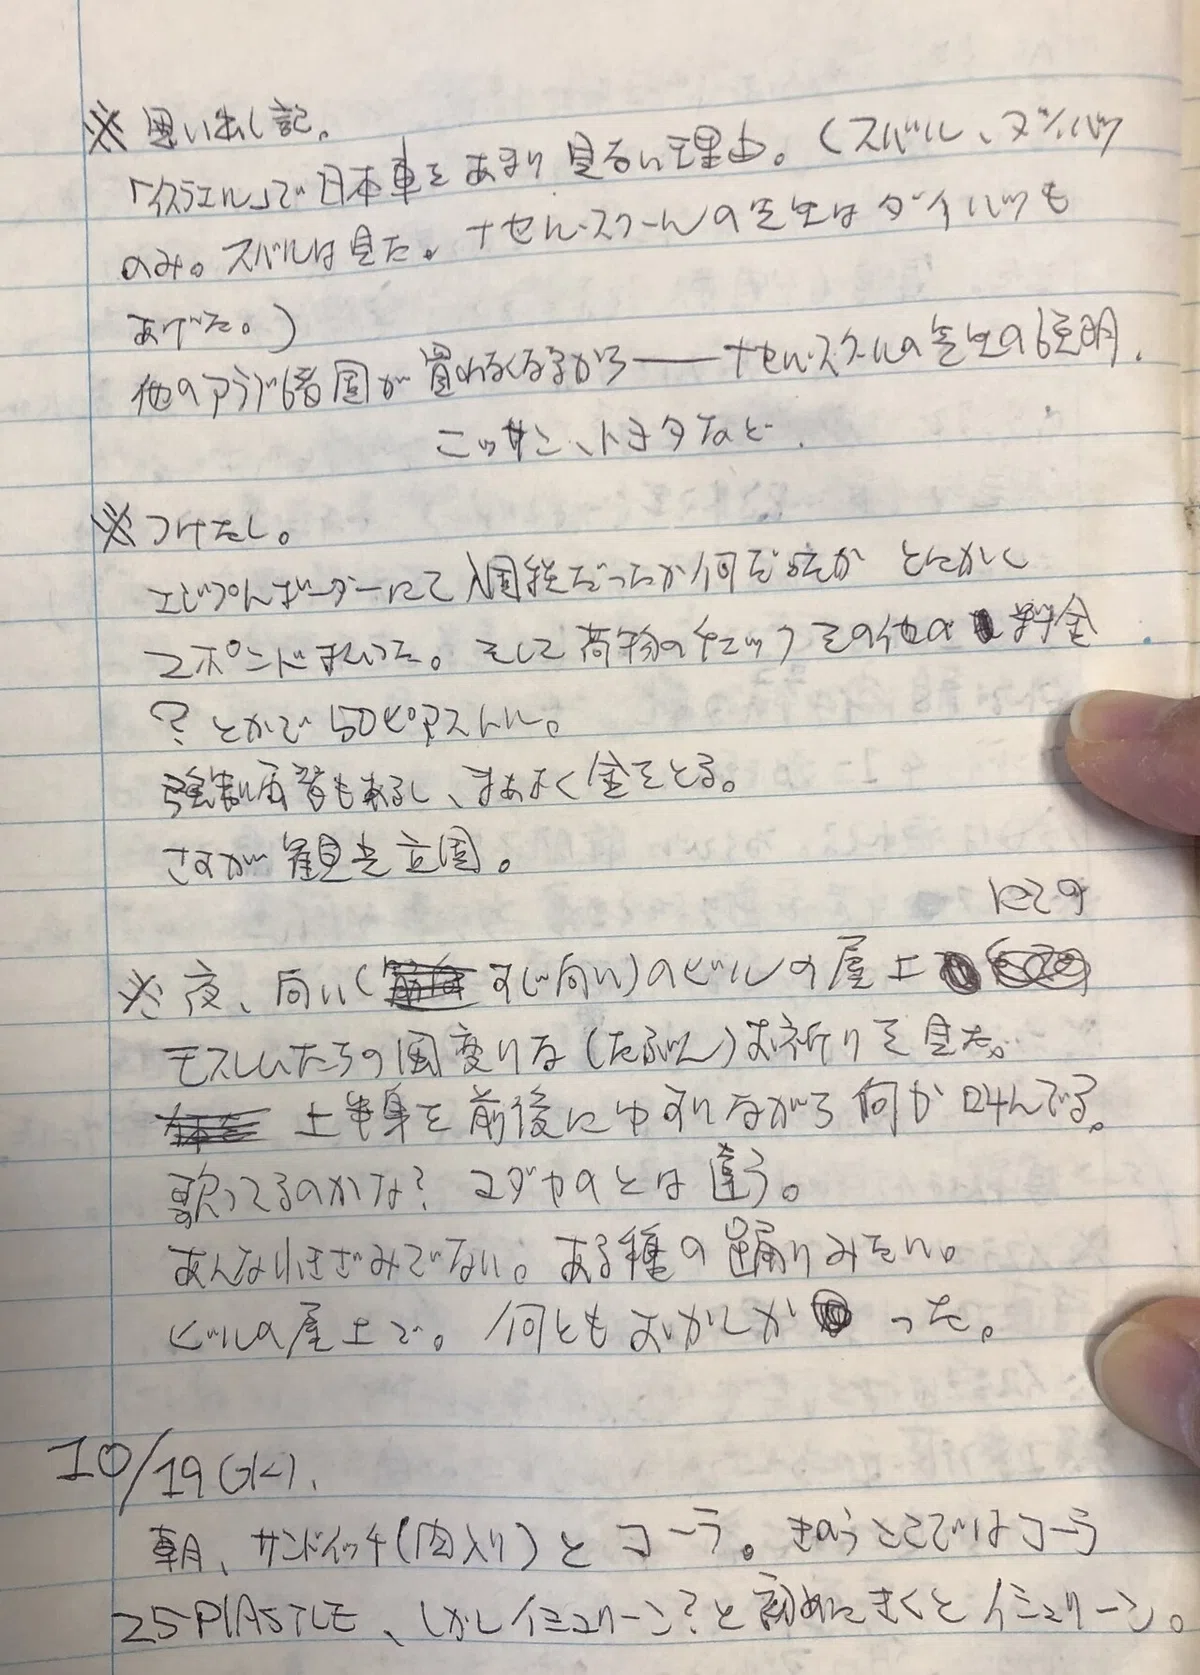 ※ 思い出し記。
「イスラエル」で日本車をあまり見ない理由。(スバル、ダイハツ
のみ。スバルは見た。ナセル・スクールの先生はダイハツも
あげた。)
他のアラブ諸国が買わなくなるから——ナセル・スクールの先生の説明.
ニッサン、トヨタなど.
※ つけたし。
エジプトボーダーにて入国税だったか何だったか とにかく
2ポンド払った。そして荷物のチェックその他の料金
? とかで 50ピアストル。
強制両替もあるし、まあよく金をとる。
さすが観光立国。
にての
※ 夜、向い(すじ向い)のビルの屋上
モスレムたちの風変りな(たぶん)お祈りを見た。
上半身を前後にゆすりながら何か叫んでる。
歌ってるのかな? ユダヤのとは違う。
あんな小きざみでない。ある種の踊りみたい。
ビルの屋上で。何ともおかしかった。
10/19(水).
朝、サンドイッチ(肉入り)とコーラ。きのうとこではコーラ
25PIASTLE、しかしイシュリーン?と初めにきくとイシュリーン。